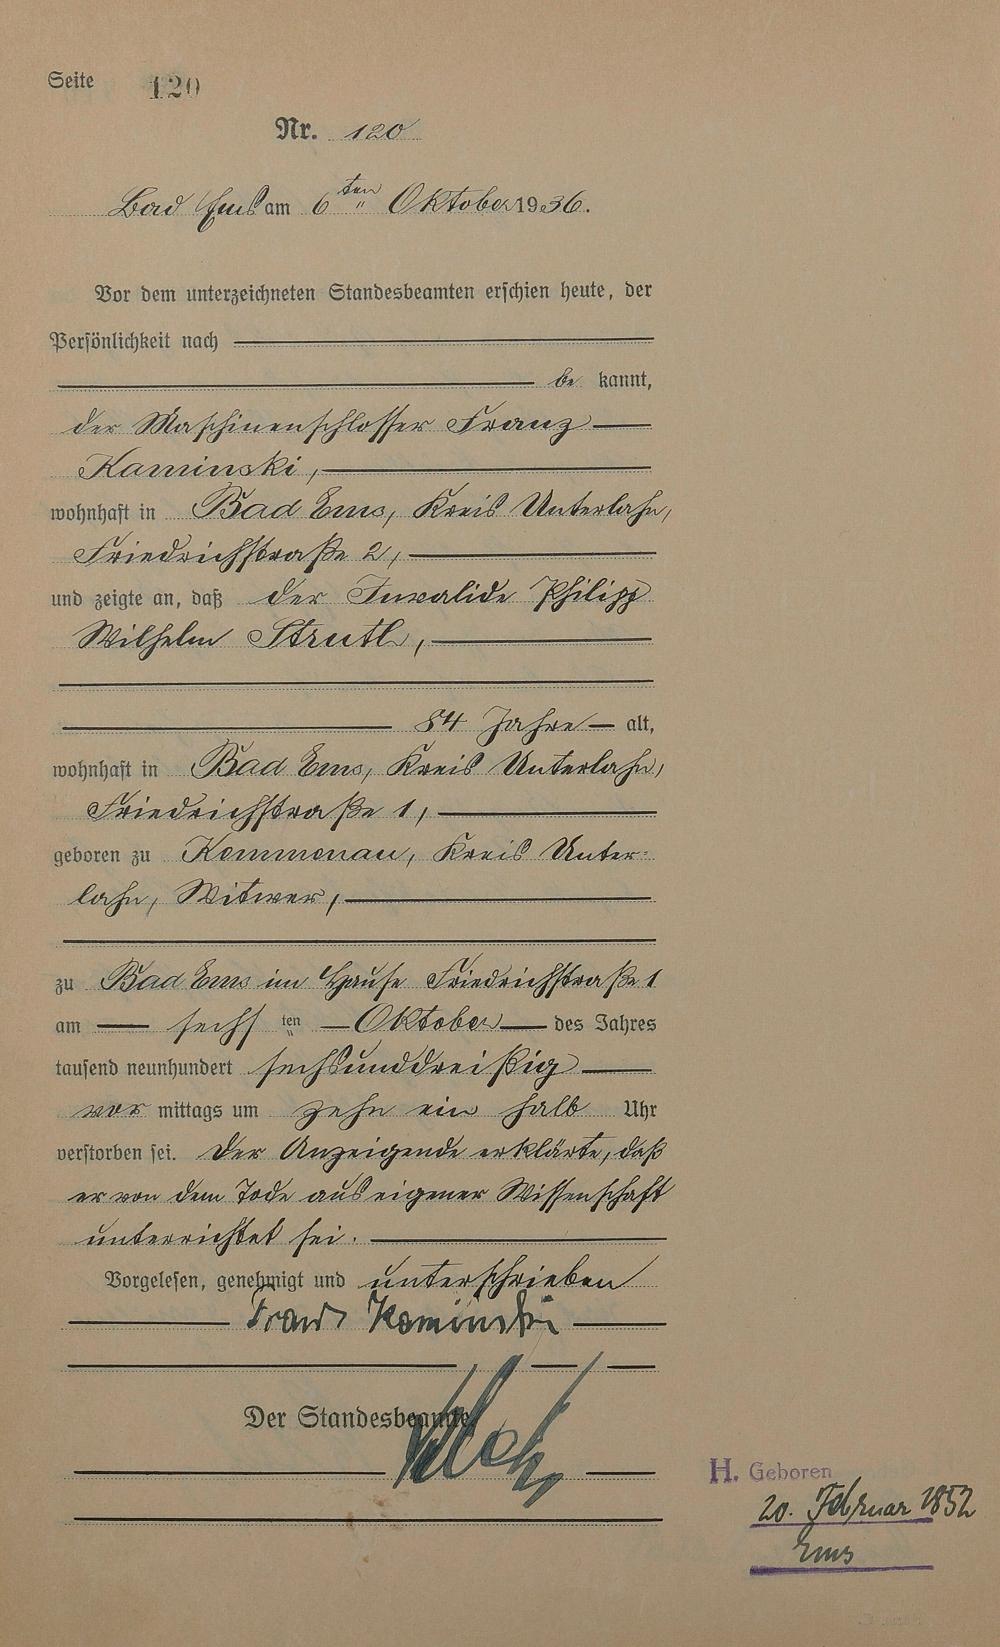 Seite 120
Nr. 120
Bad Ems am 6ten Oktober 1936.
Vor dem unterzeichneten Standesbeamten erschien heute, der
Persönlichkeit nach
be kannt,
der Maschinenschlosser Franz
Kaminski,
wohnhaft in Bad Ems, Kreis Unterlahn,
Friedrichstraße 2,
und zeigte an, daß der Invalide Philipp
Wilhelm
84 Jahre alt,
wohnhaft in Bad Ems, Kreis Unterlahn,
Friedrichstraße 1,
geboren zu Kemmenau, Kreis Unter-
lahn, Witwer,
zu Bad Ems im Hause Friedrichstraße 1
am sechs ten Oktober des Jahres
tausend neunhundert sechsunddreißig
vor mittags um zehn ein halb Uhr
verstorben sei. Der Anzeigende erklärte, daß
er von dem Tode aus eigener Wissenschaft
unterrichtet sei.
Vorgelesen, genehmigt und unterschrieben
Franz Kaminski
Der Standesbeamte.
H. Geboren
20. Februar 1852
Ems